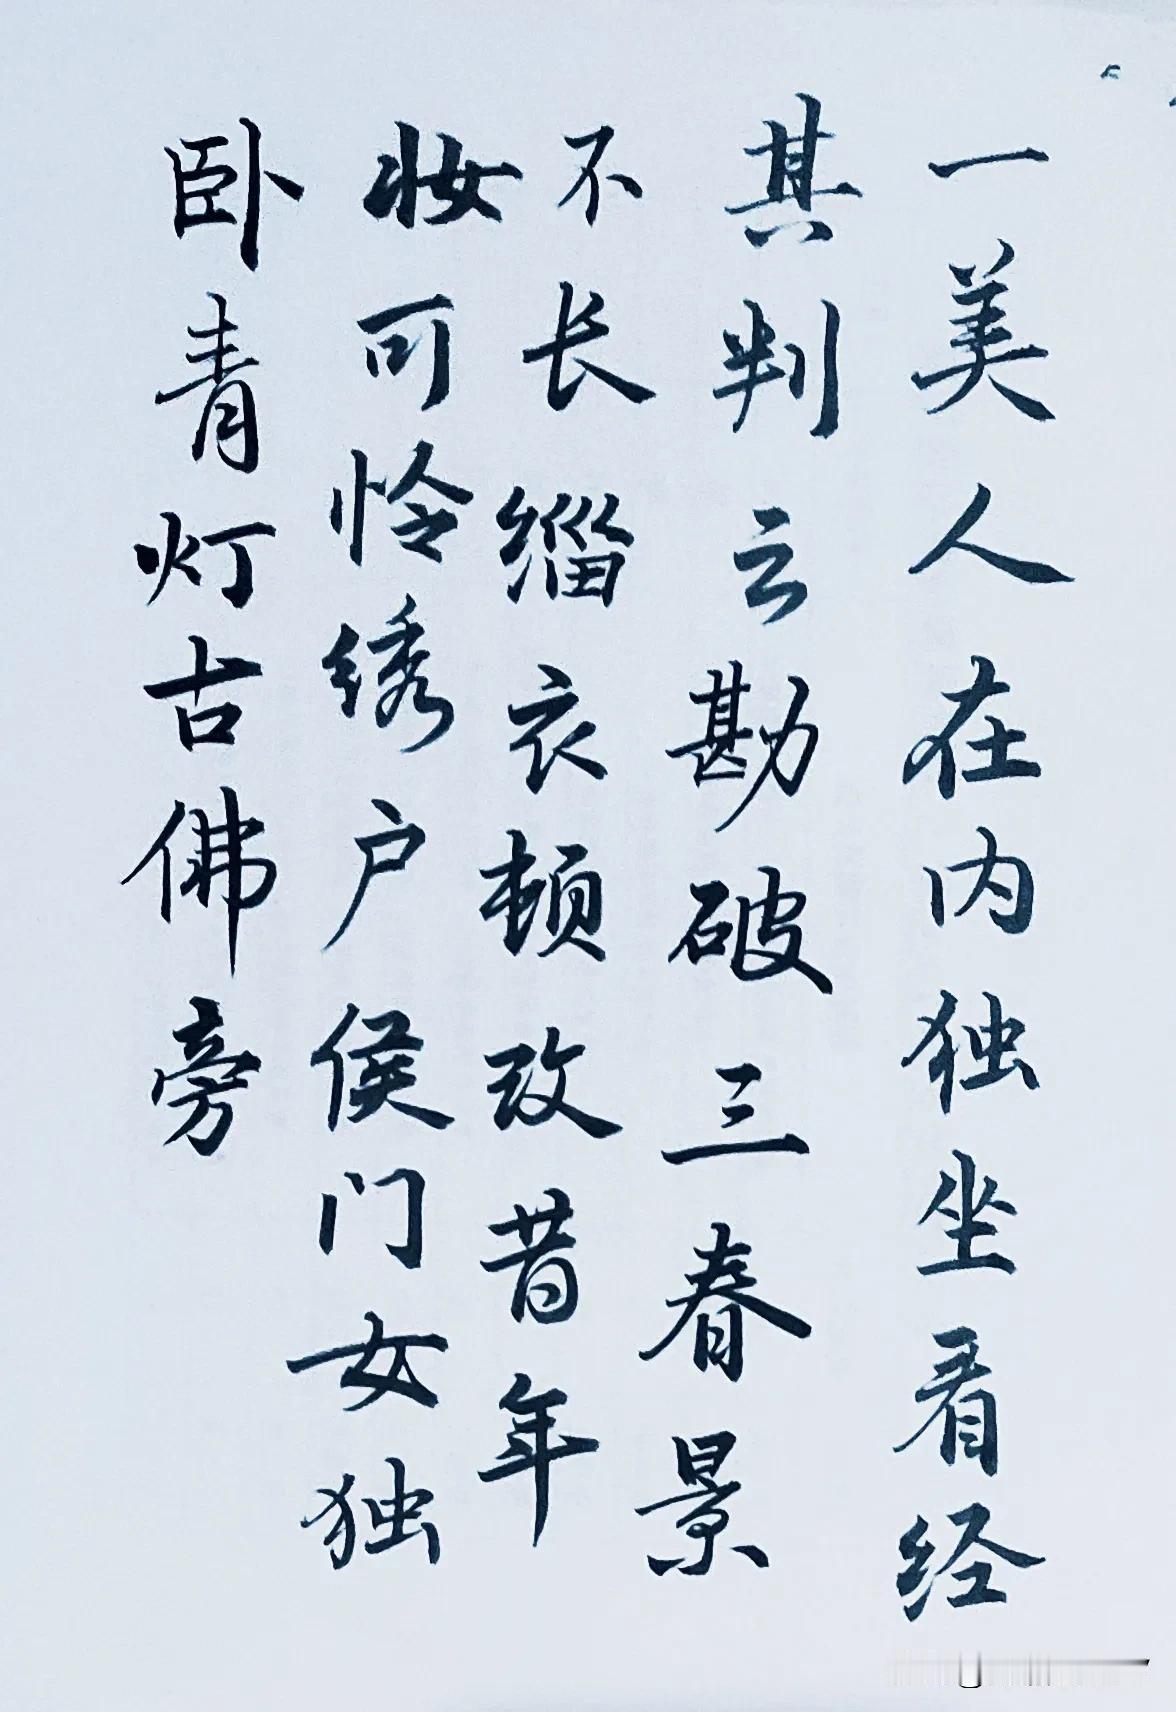 一美人在内独坐看经
其判云勘破三春景
不长缁衣顿改昔年
妆可怜绣户侯门女独
卧青灯古佛旁